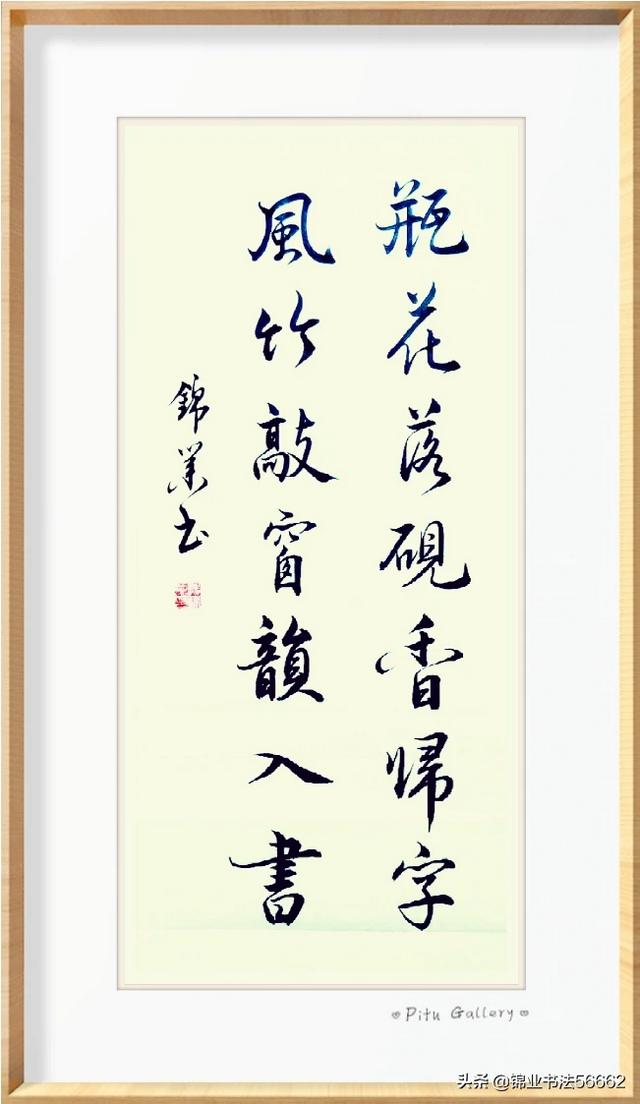 瓶花落硯香歸字
風竹敲窗韻入書
錦業书
Pitu Gallery
头条 @锦业书法56662